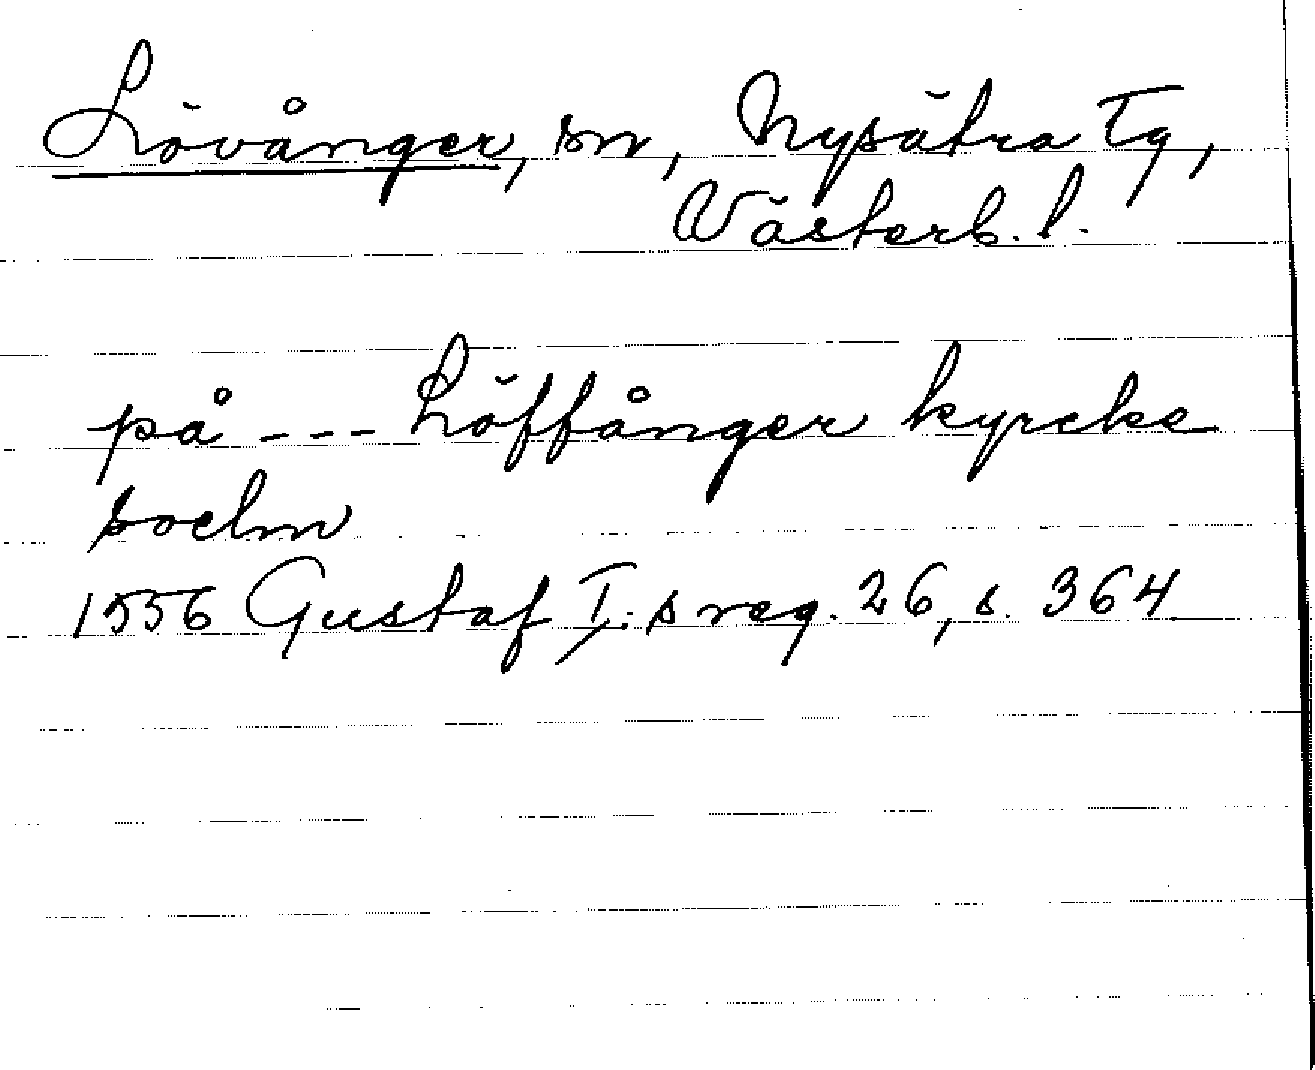 Lövånger, sn, Nysätra Tg,
Västerb. l.
på --- Löffånger kyrcke
soclm
1556 Gustaf I:s reg. 26, s. 364